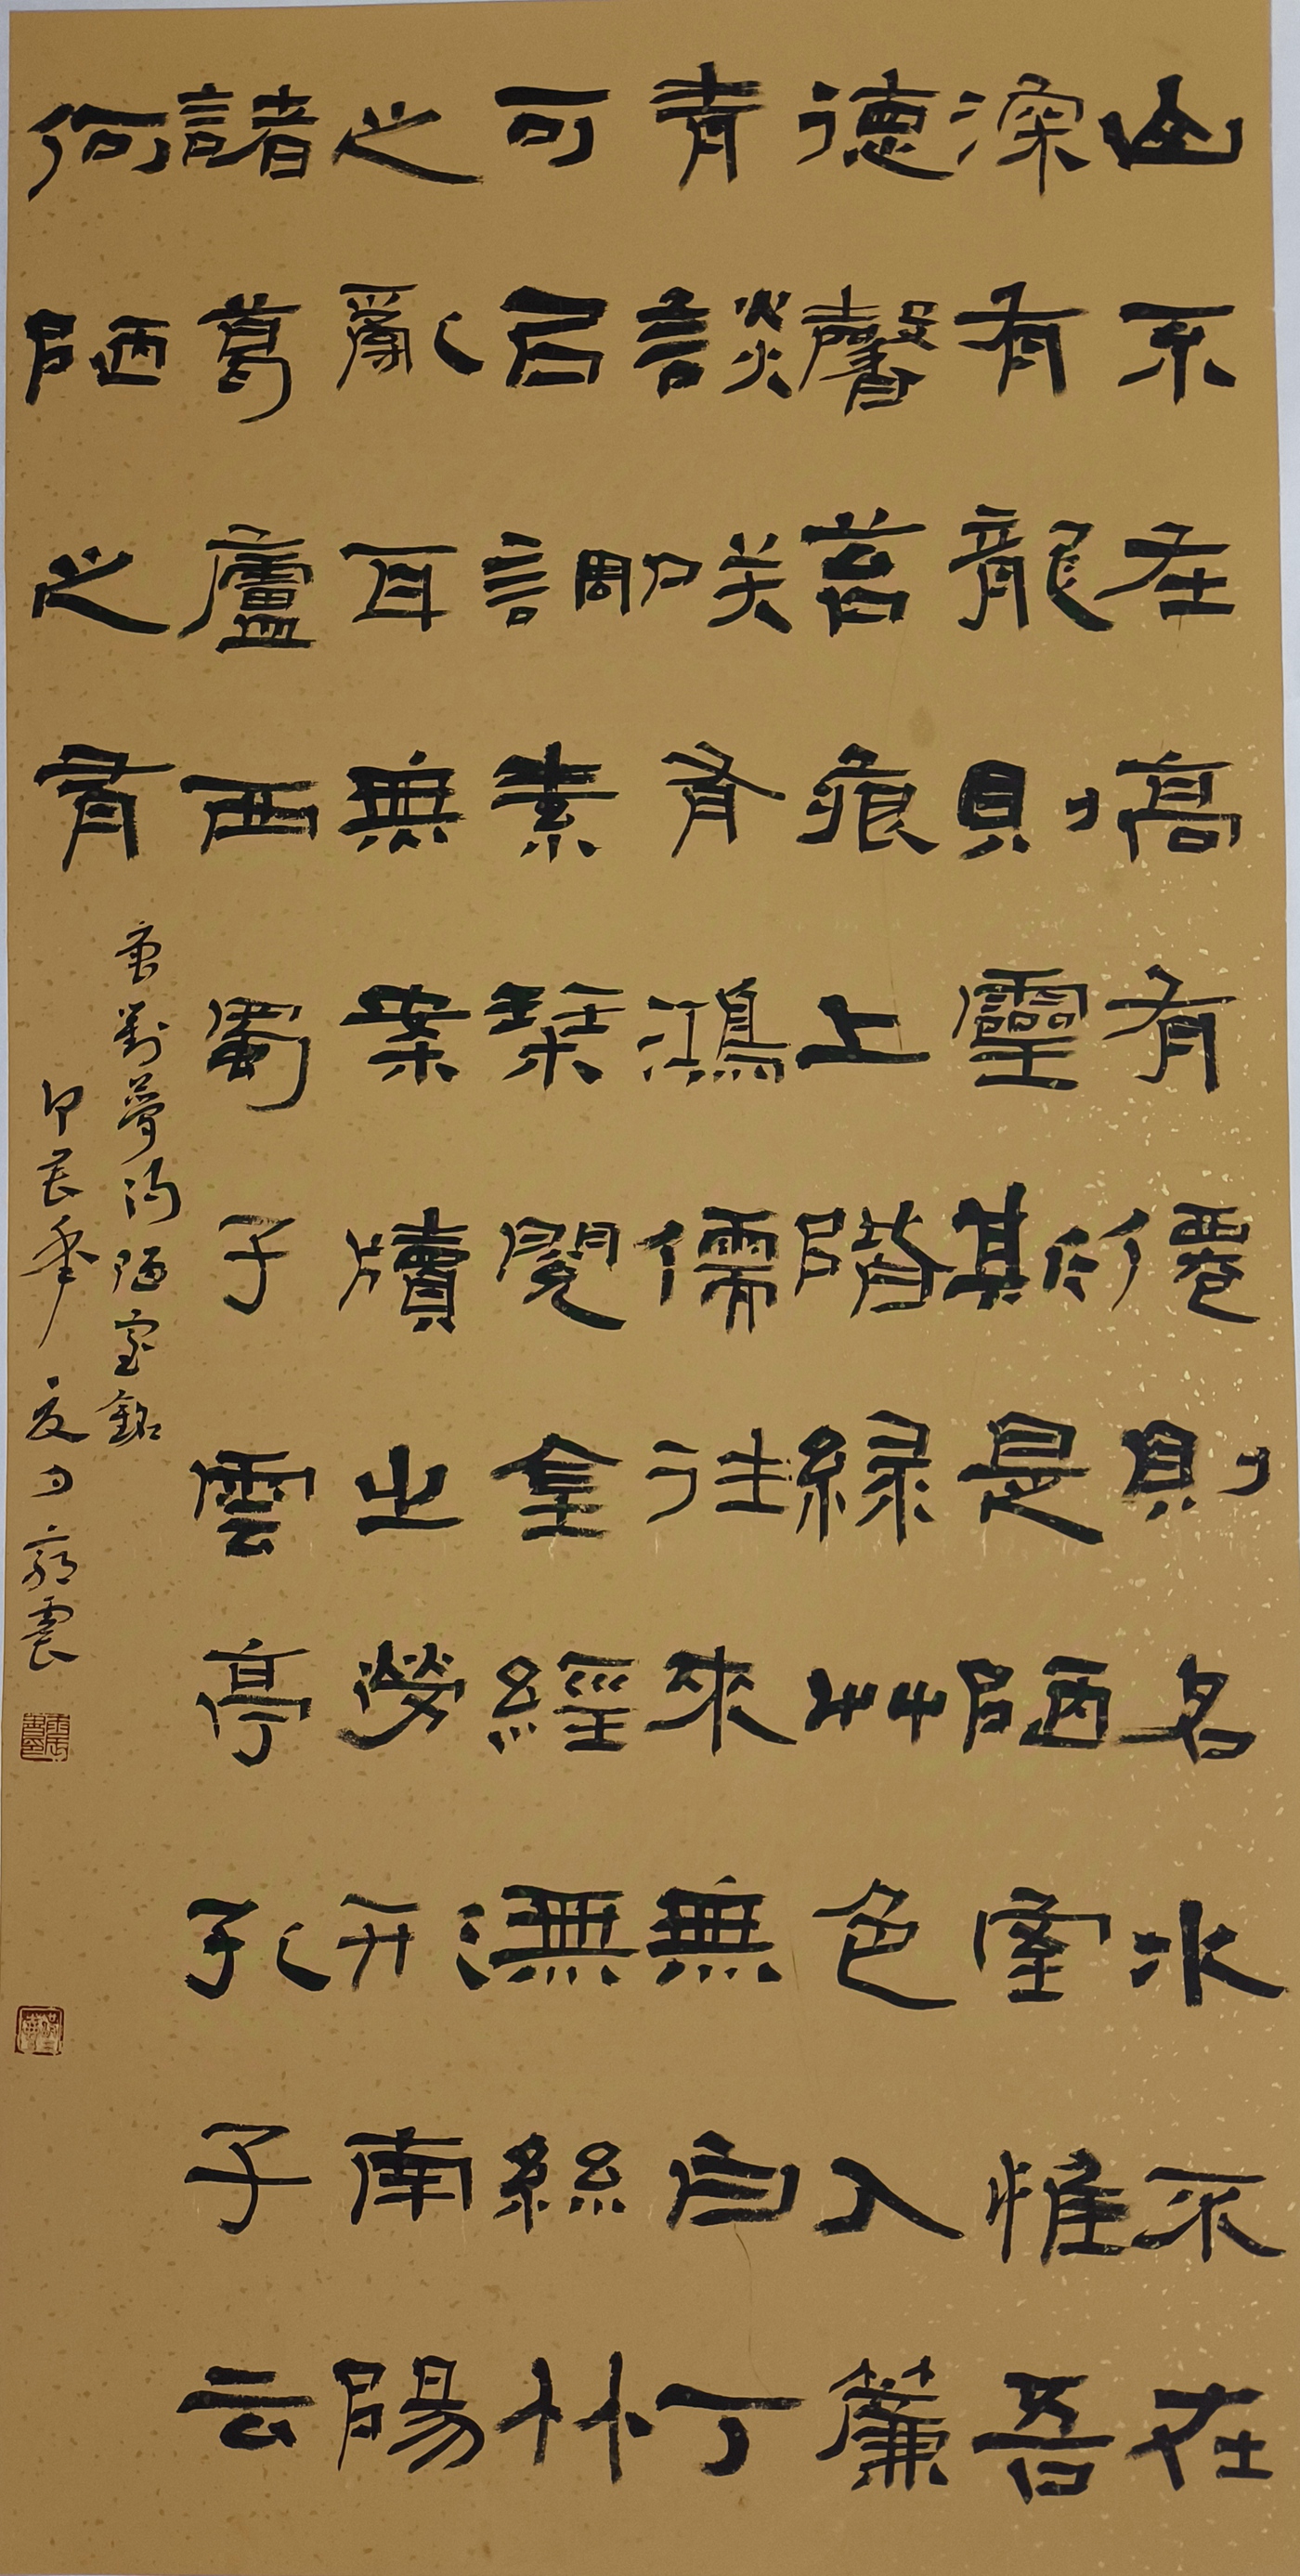 山不在高有僊則名水不在
深有龍則靈斯是陋室惟吾
德馨苔痕上階緑艸色入簾
青談咲有鴻儒往來無白丁
可㠯調素琹閱金經無絲竹
之亂耳無案牘之勞形南陽
諸葛廬西蜀子雲亭孔子云
何陋之有
唐劉夢得陋室銘
甲辰年夏月郭震